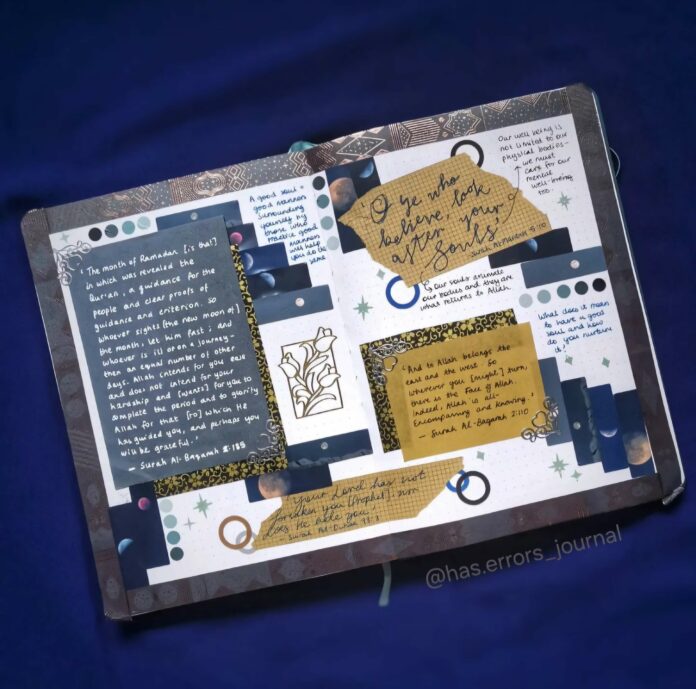 The month of Ramadan [is that]
in which was revealed the
Qur'an, a guidance for the
people and clear proofs of
guidance and criterion. So
whoever sights [the new moon of]
the month, let him fast; and
whoever is ill or on a journey -
then an equal number of other
days. Allah intends for you ease
and does not intend for your
hardship and [wants] for you to
complete the period and to glorify
Allah for that [to] which He
has guided you, and perhaps you
will be grateful.'
- Surah Al-Baqarah 2:185
A good soul =
good manners
surrounding
yourself by
those who
practice good
manners
will help
you do the
same
your Lord has not
forsaken you [Prophet], nor
does He hate you,'
- Surah Ad-Duhaa 93:3
O ye who
believe, look
after your
souls'
- Surah Al-Maidah 5:110
Our well being is
not limited to our
physical bodies -
we must
care for our
mental
well-being
too.
Our souls animate
our bodies and they are
what returns to Allah.
What does it mean
to have a good
soul and how
do you nurture
it?
'And to Allah belongs the
east and the west. So
wherever you [might] turn,
there is the Face of Allah.
Indeed, Allah is all-
Encompassing and Knowing.'
- Surah Al-Baqarah 2:110
@has.errors_journal